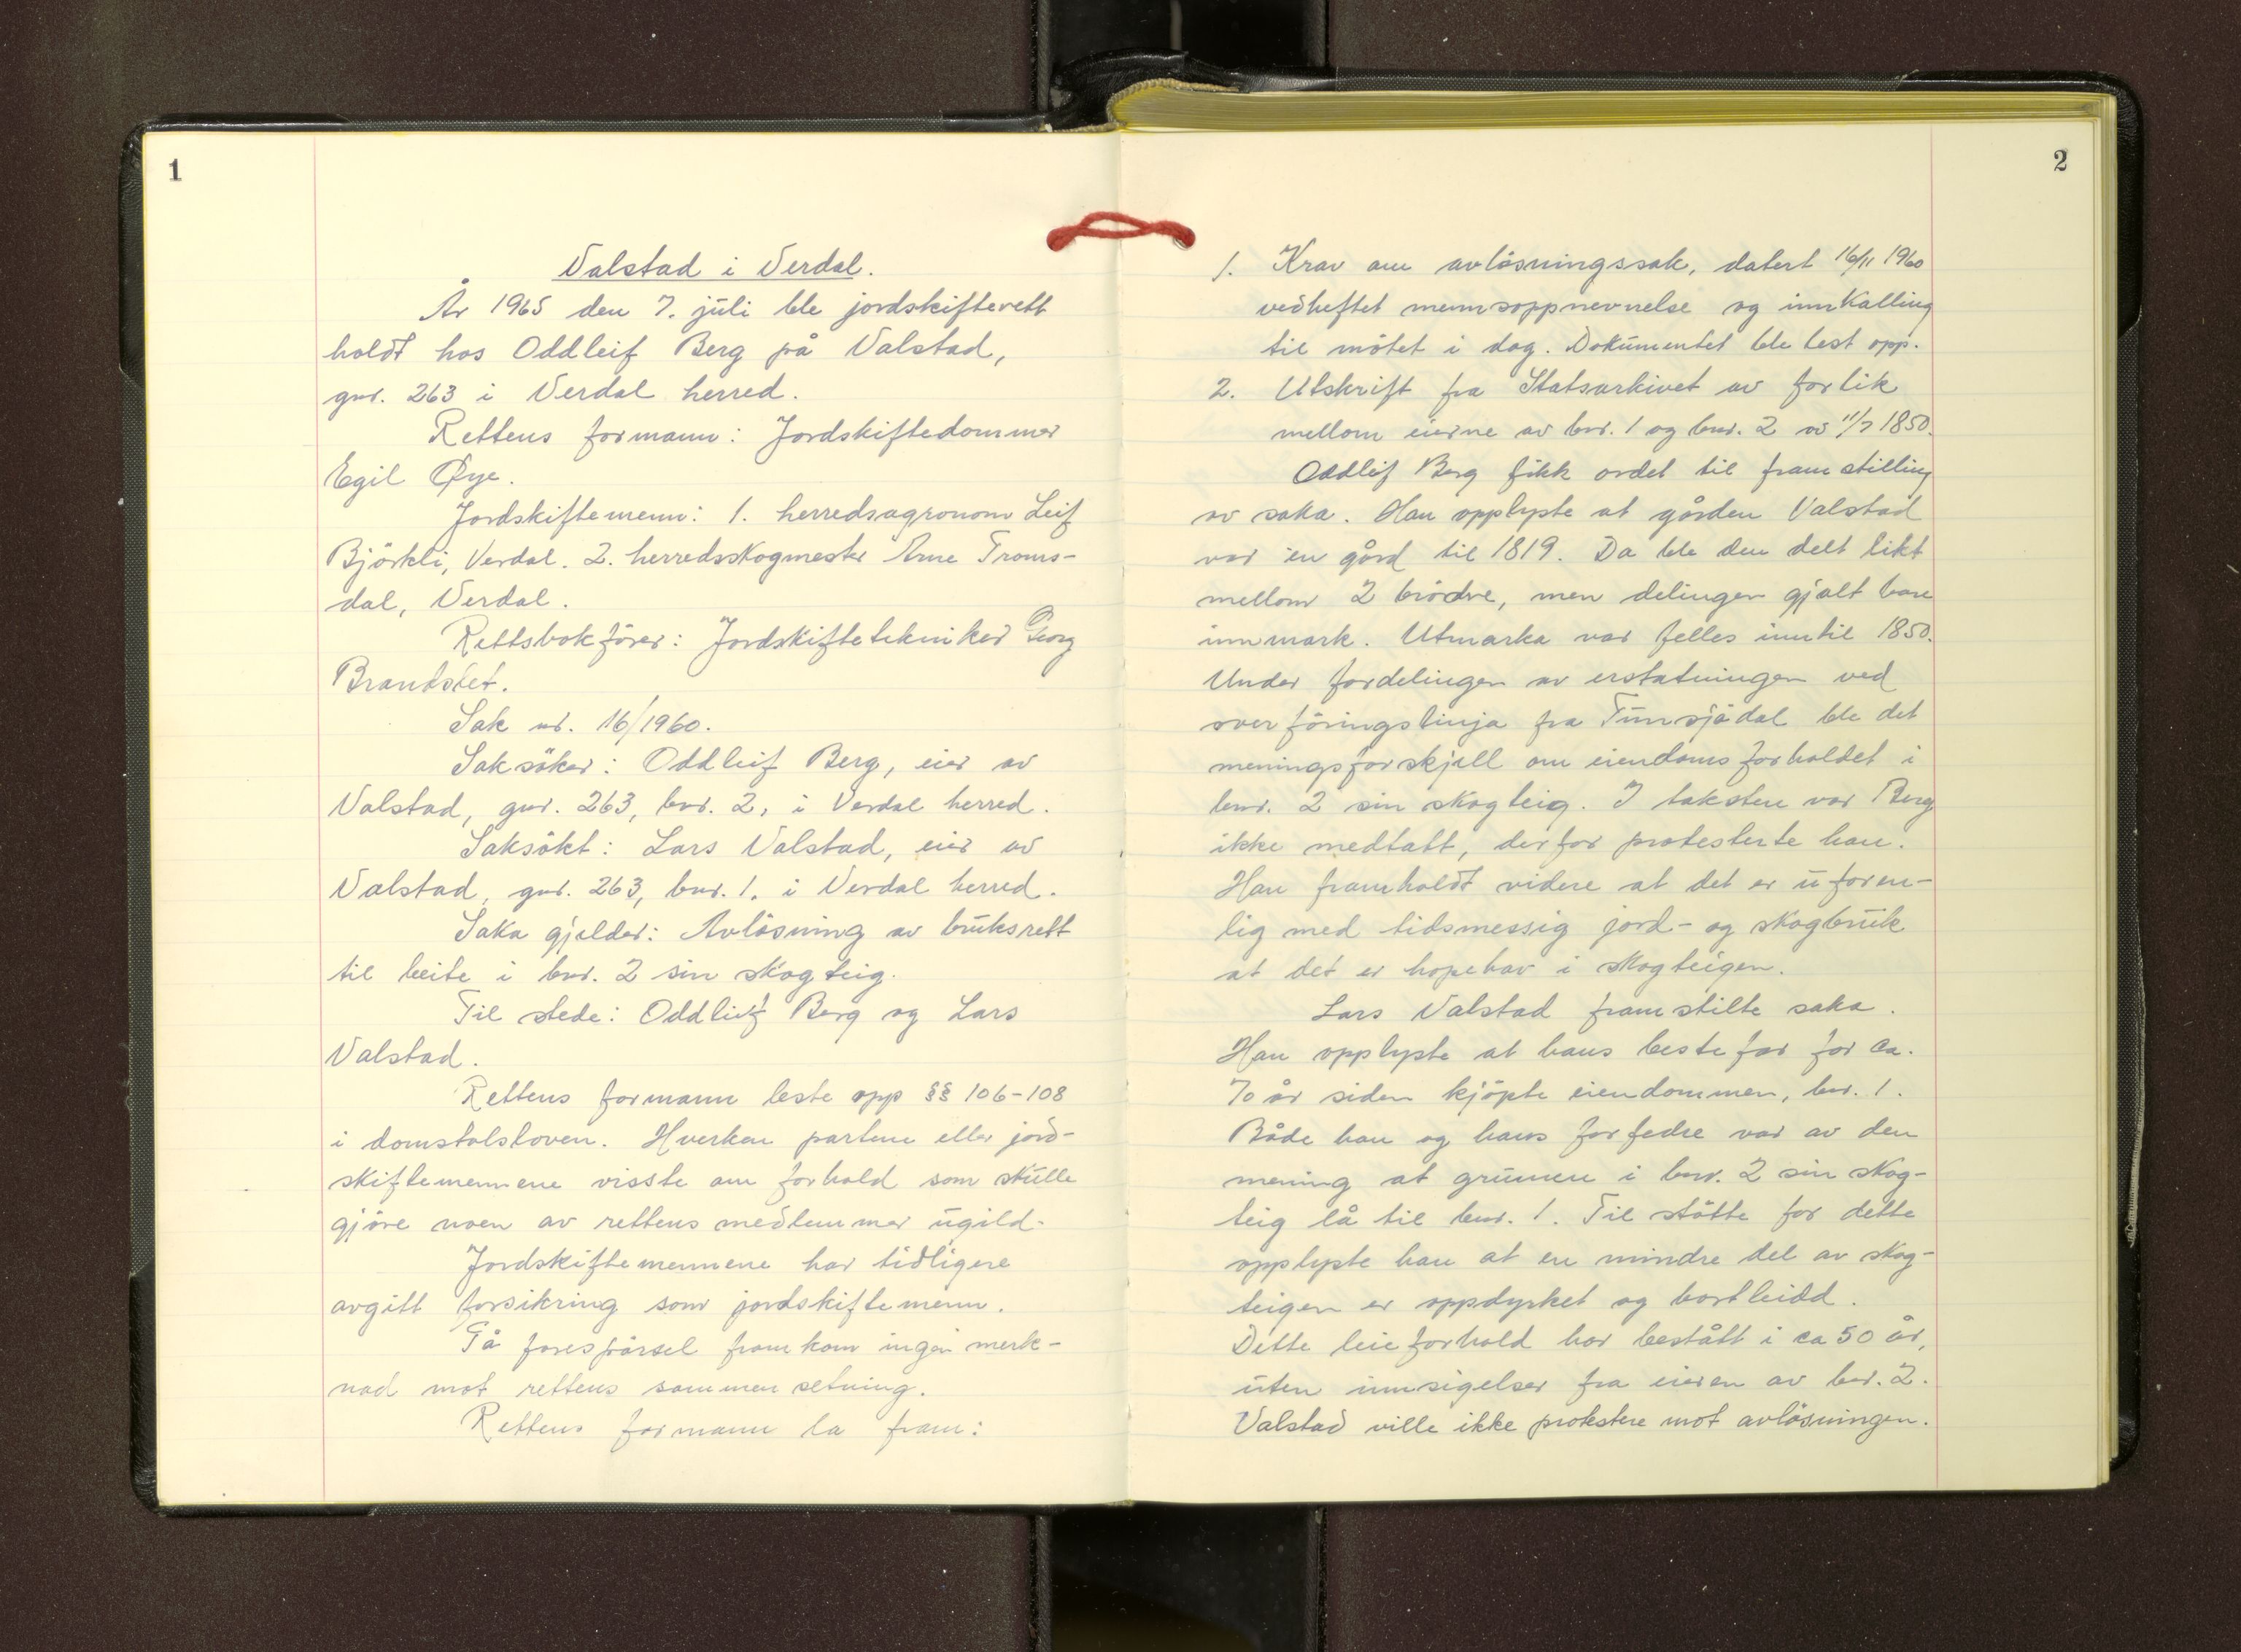 1
Valstad i Verdal.
År 1965 den 7. juli ble jordskifterett
holdt hos Oddleif Berg på Valstad,
gnr. 263 i Verdal herred.
Rettens formann: Jordskiftedommer
Egil Øye.
Jordskiftemenn: 1. herredsagronom Leif
Björkli, Verdal. 2. herredsskogmester Arne Troms-
dal, Verdal.
Rettsbokförer: Jordskiftetekniker Georg
Brandslet.
Sak nr. 16/1960.
Saksöker: Oddleif Berg, eier av
Valstad, gnr. 263, bnr. 2, i Verdal herred.
Saksökt: Lars Valstad, eier av
Valstad, gnr. 263, bnr. 1. i Verdal herred.
Saka gjelder: Avlösning av bruksrett
til beite i bnr. 2 sin skogteig.
Til stede: Oddleif Berg og Lars
Valstad.
Rettens formann leste opp §§ 106-108
i domstolsloven. Hverken partene eller jord-
skiftemennene visste om forhold som skulle
gjöre noen av rettens medlemmer ugild.
Jordskiftemennene har tidligere
avgitt forsikring som jordskiftemenn.
På forespörsel framkom ingen merk-
nad mot rettens sammensetning.
Rettens formann la fram:
2
1. Krav om avlösningssak, datert 16/11 1960
vedheftet mennsoppnevnelse og innkalling
til mötet i dag. Dokumentet ble lest opp.
2. Utskrift fra Statsarkivet av forlik
mellom eierne av bnr. 1 og bnr. 2 av 11/7 1850.
Oddleif Berg fikk ordet til framstilling
av saka. Han opplyste at gården Valstad
var èn gård til 1819. Da ble den delt likt
mellom 2 brödre, men delingen gjalt bare
innmark. Utmarka var felles inntil 1850.
Under fordelingen av erstatningen ved
overföringslinja fra Tunsjödal ble det
meningsforskjell om eiendomsforholdet i
bnr. 2 sin skogteig. I takstene var Berg
ikke medtatt, derfor protesterte han.
Han framholdt videre at det er uforen-
lig med tidsmessig jord- og skogbruk
at det er hopehav i skogteigen.
Lars Valstad framstilte saka.
Han opplyste at hans bestefar for ca.
70 år siden kjöpte eiendommen, bnr. 1.
Både han og hans forfedre var av den
mening at grunnen i bnr. 2 sin skog-
teig lå til bnr. 1. Til stötte for dette
opplyste han at en mindre del av skog-
teigen er oppdyrket og bortleidd.
Dette leieforhold har bestått i ca 50 år,
uten innsigelser fra eieren av bnr. 2.
Valstad ville ikke protestere mot avlösningen.